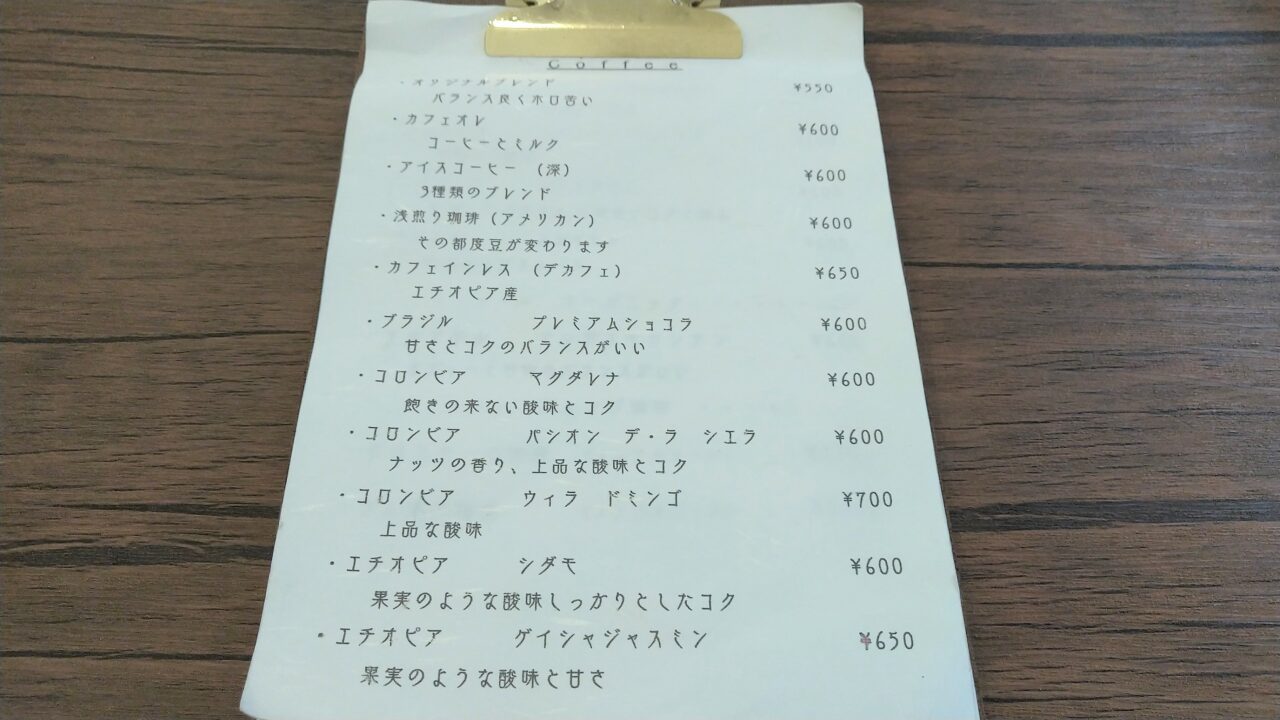 Coffee
・オリジナルブレンド ¥550
バランス良くホロ苦い
・カフェオレ ¥600
コーヒーとミルク
・アイスコーヒー （深） ¥600
3種類のブレンド
・浅煎り珈琲（アメリカン） ¥600
その都度豆が変わります
・カフェインレス （デカフェ） ¥650
エチオピア産
・ブラジル プレミアムショコラ ¥600
甘さとコクのバランスがいい
・コロンビア マグダレナ ¥600
飽きの来ない酸味とコク
・コロンビア パシオン デ・ラ シエラ ¥600
ナッツの香り、上品な酸味とコク
・コロンビア ウィラ ドミンゴ ¥700
上品な酸味
・エチオピア シダモ ¥600
果実のような酸味しっかりとしたコク
・エチオピア ゲイシャジャスミン ¥650
果実のような酸味と甘さ